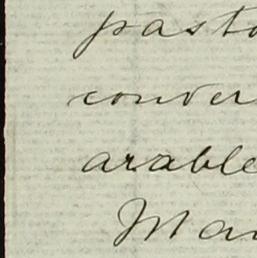 pasto
conver
arable
Mar